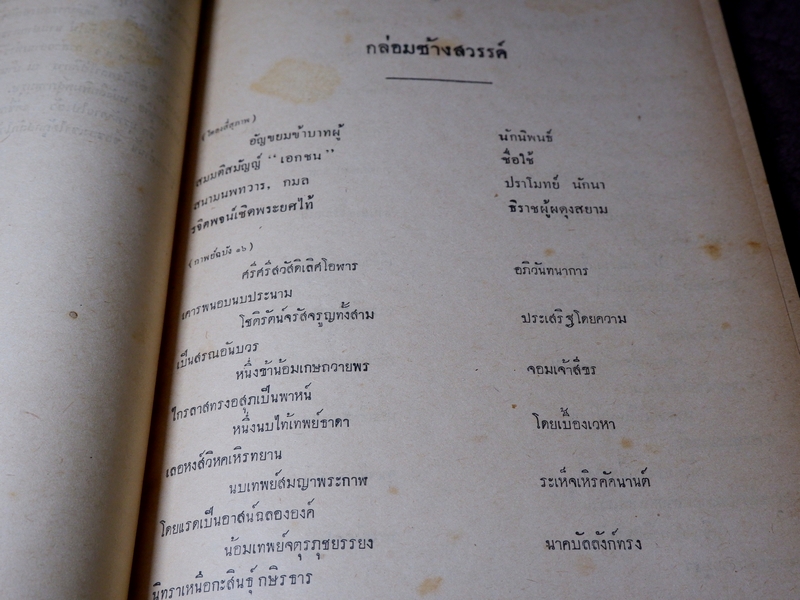 กล่อมช้างสวรรค์
(โคลงสี่สุภาพ)
อัญขยมข้าบาทผู้ นักนิพนธ์
สมมติสมัญญ์ "เอกชน" ชื่อใช้
สนามนพทวาร, กมล ปราโมทย์ นักนา
รจิตพจน์เชิดพระยศไท้ ธิราชผู้ผดุงสยาม
(กาพย์ฉบัง ๑๖)
ศรีศรีสวัสดิเลิศโอฬาร อภิวันทนาการ
เคารพนอบนบประนาม
โชติรัตน์จรัสจรูญทั้งสาม ประเสริฐโดยความ
เป็นสรณอันบวร
หนึ่งข้าน้อมเกษถวายพร จอมเจ้าสีขร
ไกรลาสทรงอสุภเป็นพาหน์
หนึ่งนบไท้เทพย์ธาดา โดยเบื้องเวหา
เลอหงส์วิหคเหิรทยาน
นบเทพย์สมญาพระกาฬ ระเห็จเหิรคัคนานต์
โดยแรดเป็นอาสน์ฉลององค์
น้อมเทพย์จตุรภุชยรรยง นาคบัลลังก์ทรง
นิทราเหนือกะสินธุ์กษิรธาร